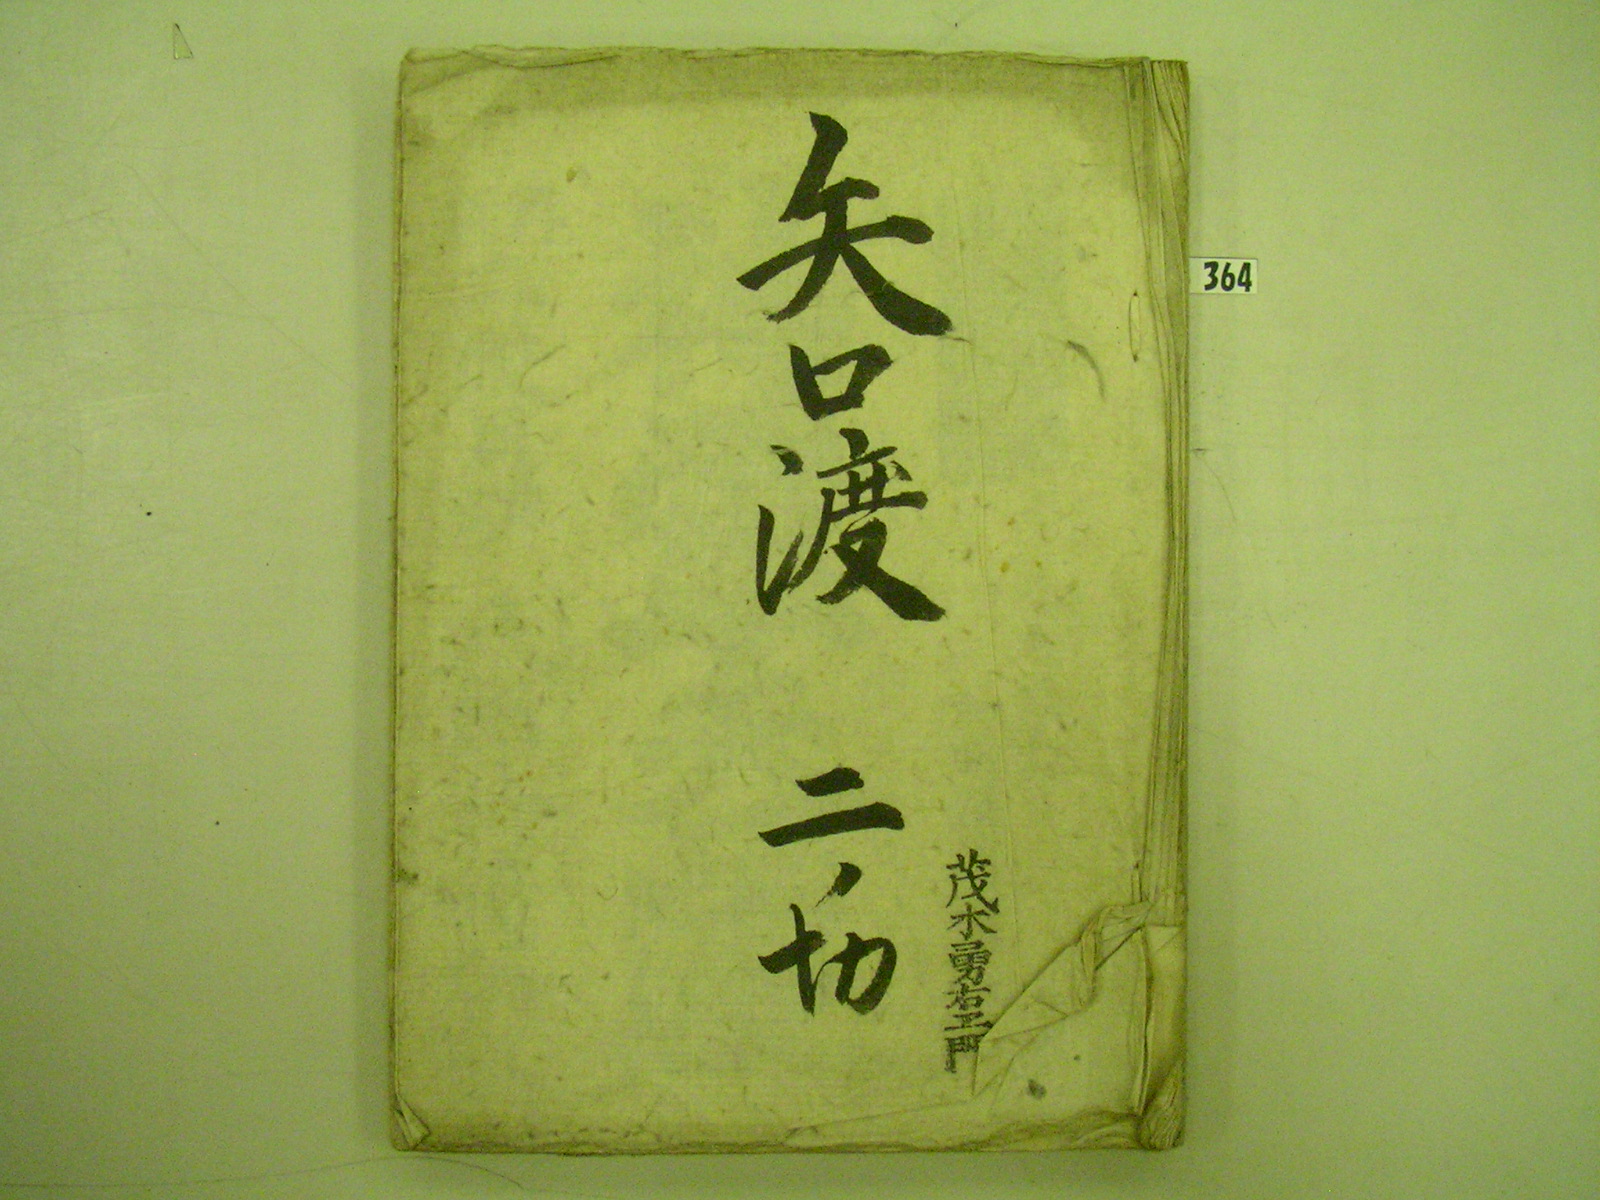 矢口渡 二ノ切
茂木勇右エ門
364